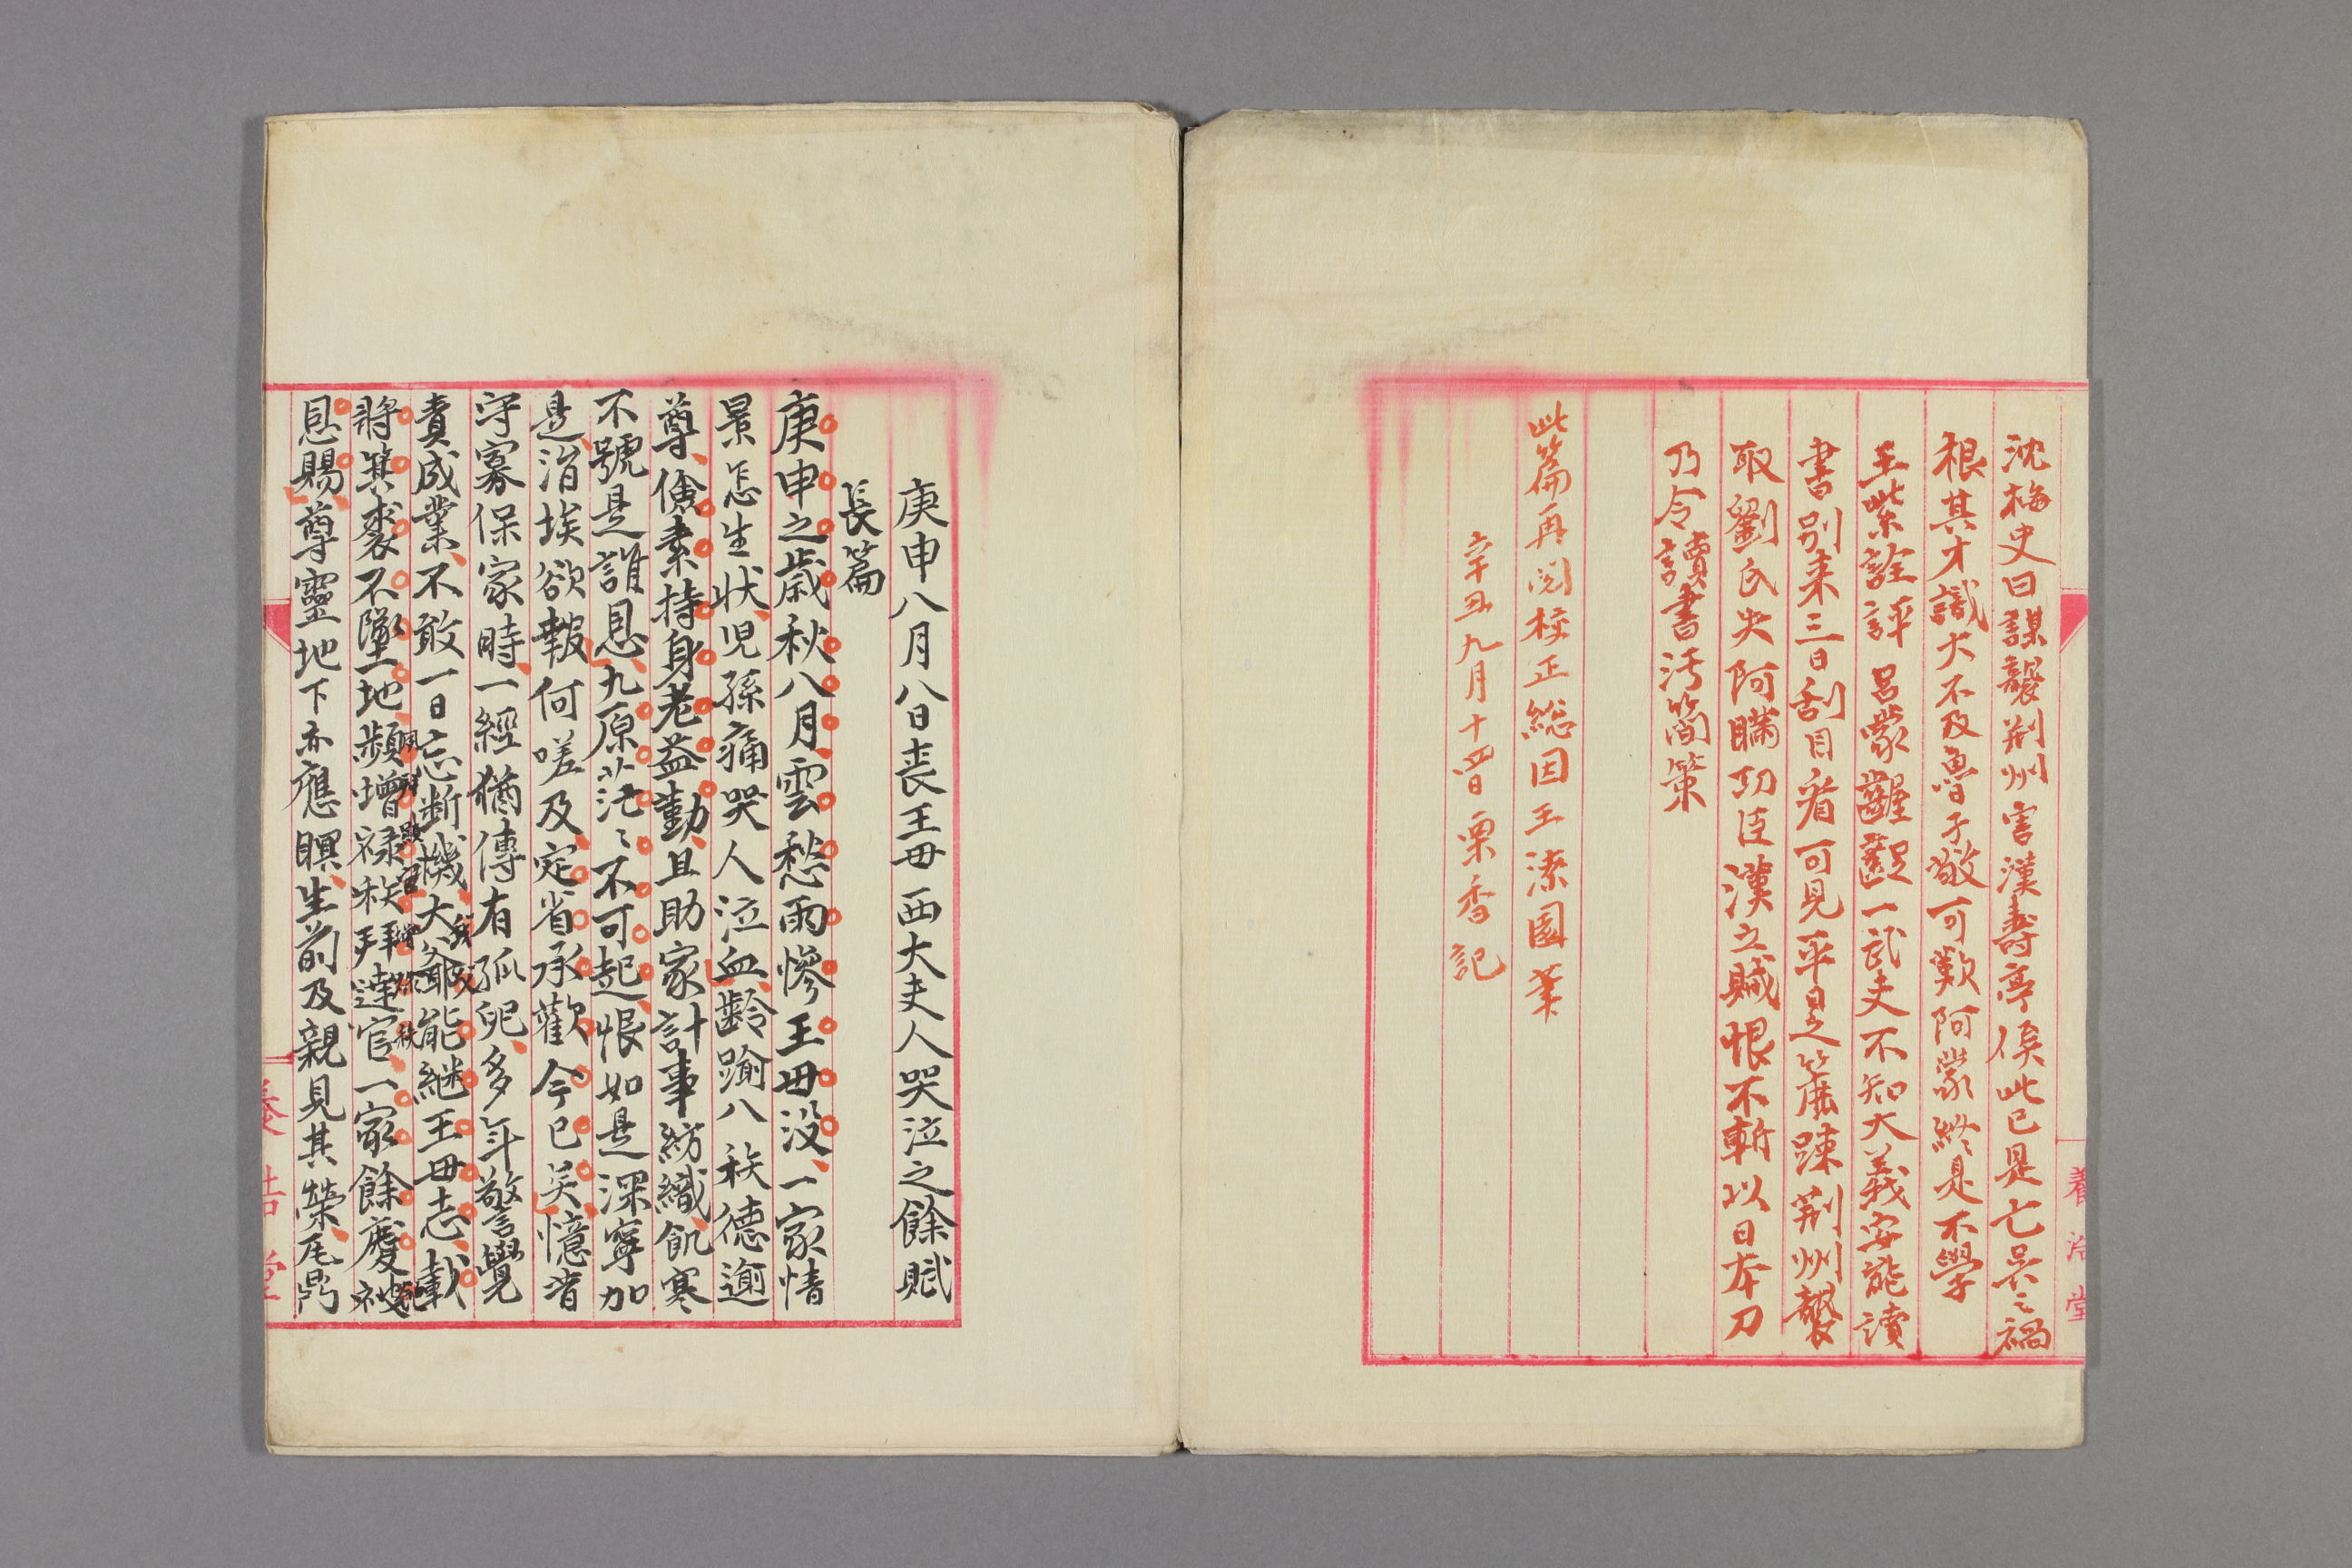 沈梅史曰謀襲荊州害漢壽亭侯此已是亡吳之禍
根其才識大不及魯子敬可歎阿蒙終是不學
王紫詮評 呂蒙齷齪一武夫不知大義安能讀
書別来三日刮目看可見平日之麤疎荊州襲
取劉氏失阿瞞功臣漢之賊恨不斬以日本刀
乃令讀書汚簡策
此篇再閲校正總因王漆園筆
辛丑九月十四日栗香記
養浩堂
庚申八月八日喪王母西大夫人哭泣之餘賦
長篇
庚申之歳秋八月雲愁雨慘王母没一家情
景怎生状児孫痛哭人泣血齢踰八秩德逾
尊儉素持身老益勤且助家計事紡織飢寒
不號是誰恩九原茫々不可起恨如是深寧加
是涓埃欲報何嗟及定省承歡今已矣憶昔
守寡保家時一經猶傳有孤兒多年警覺
責成業不敢一日忘断機大爺能継王母志載
將箕裘不墜地頻增禄秩拜達官一家餘慶被
恩賜尊靈地下亦應瞑生前及親見其榮尾鼎
養浩堂